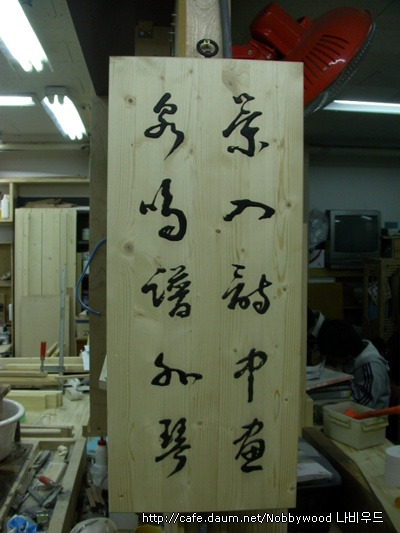 景入詩中畫
泉鳴譜外琴
http://cafe.daum.net/Nobbywood 나비우드